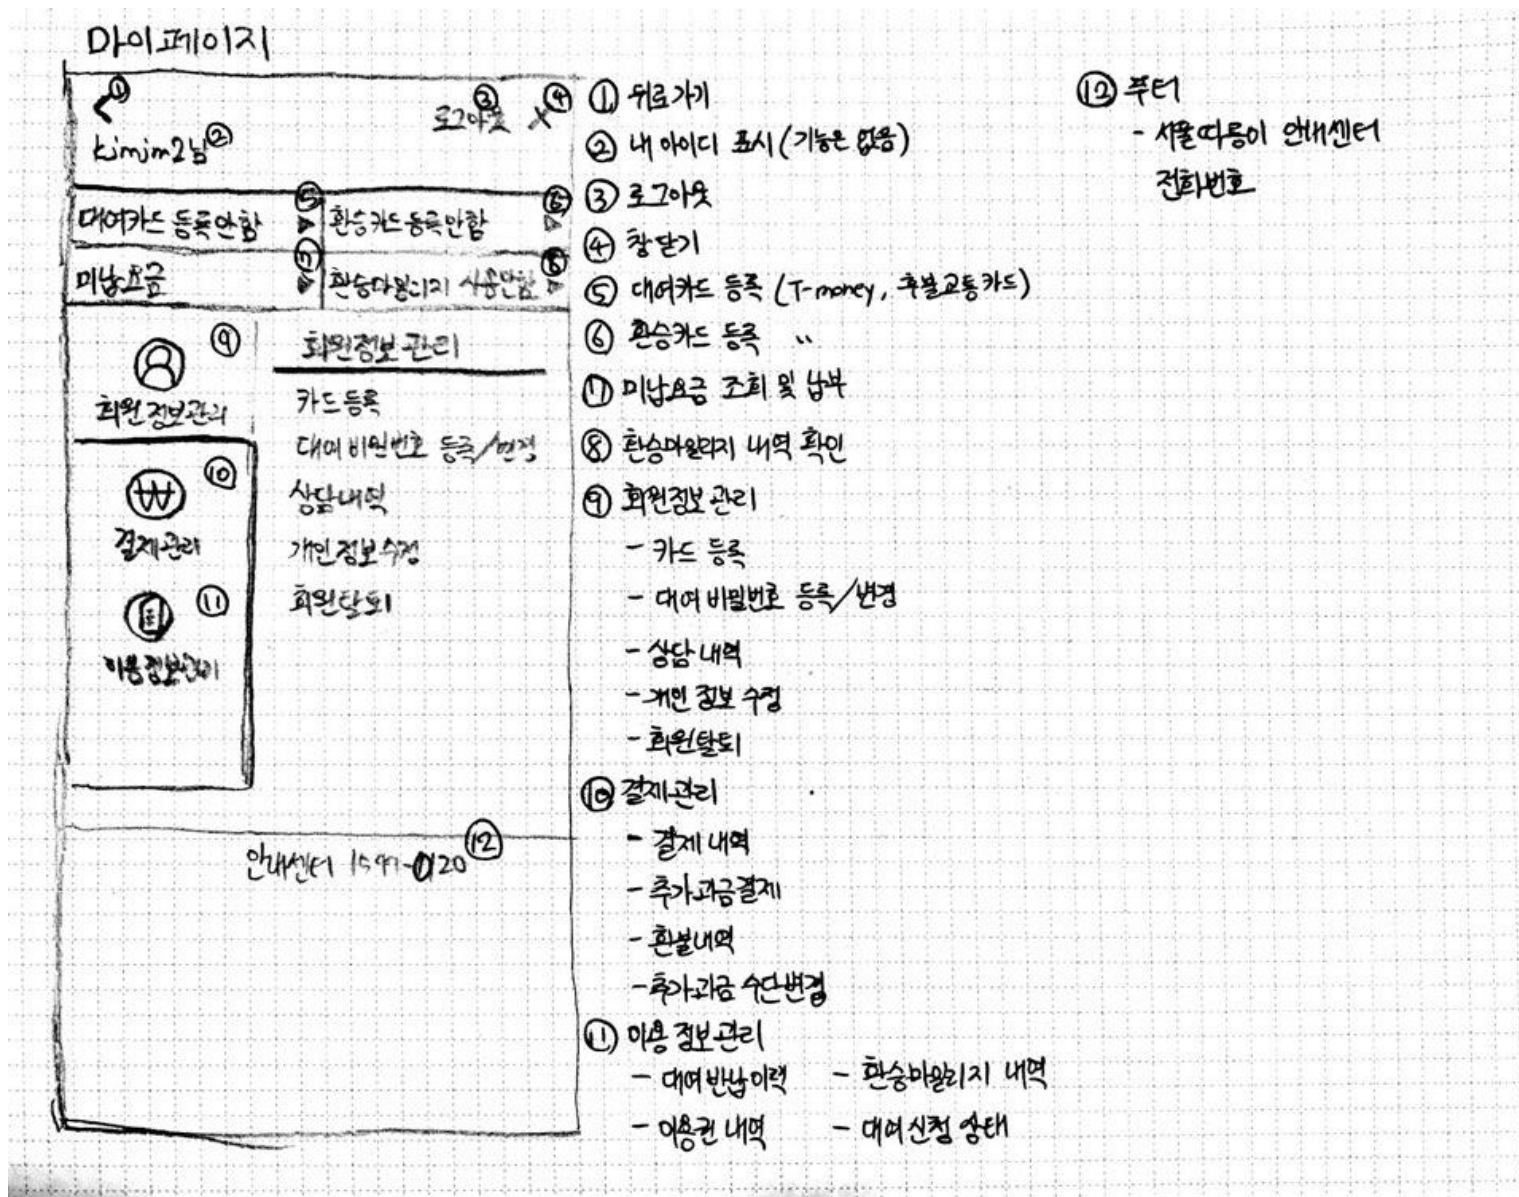 마이페이지
< ①
로그아웃 ③ X ④
kimjm2님 ②
대여카드 등록안함 ⑤ 환승카드 등록안함 ⑥
미납요금 ⑦ 환승마일리지 사용안함 ⑧
⑨
회원정보관리
⑩
₩
결제관리
⑪
이용정보관리
회원정보 관리
카드등록
대여 비밀번호 등록/변경
상담내역
개인정보수정
회원탈퇴
안내센터 1599-0120 ⑫
① 뒤로가기
② 내 아이디 표시(기능은 없음)
③ 로그아웃
④ 창 닫기
⑤ 대여카드 등록 (T-money, 후불교통카드)
⑥ 환승카드 등록 〃
⑦ 미납요금 조회 및 납부
⑧ 환승마일리지 내역 확인
⑨ 회원정보 관리
- 카드 등록
- 대여 비밀번호 등록/변경
- 상담 내역
- 개인 정보 수정
- 회원탈퇴
⑩ 결제관리
- 결제 내역
- 추가과금결제
- 환불내역
- 추가과금 수단변경
⑪ 이용 정보관리
- 대여반납이력 - 환승마일리지 내역
- 이용권 내역 - 대여신청 상태
⑫ 푸터
- 서울따릉이 안내센터
전화번호